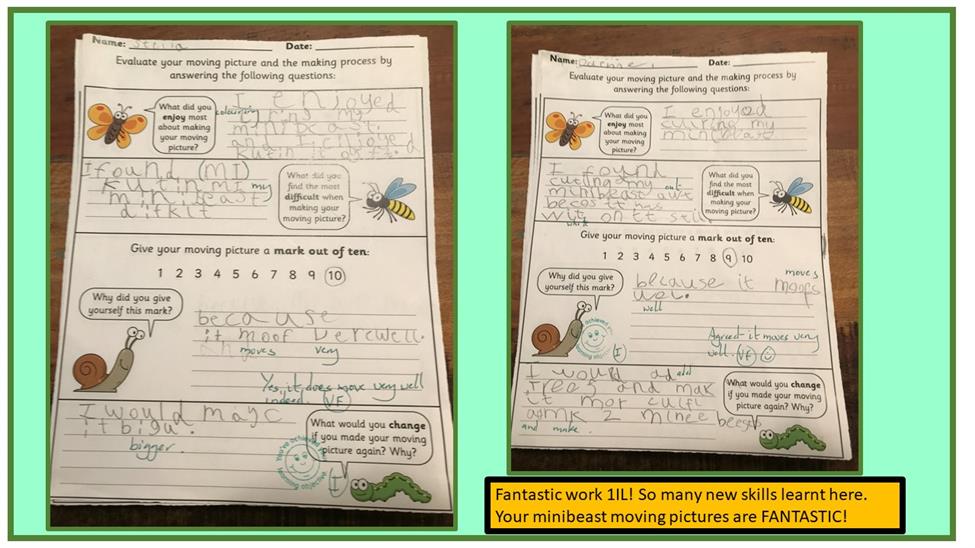 Name: Stella Date:
Evaluate your moving picture and the making process by
answering the following questions:
What did you
enjoy most
about making
your moving
picture?
I enjoyed
colouring
my
minibeast
and I enjoyed
I found (MI)
kutin mi my
minibeast
difkit
What did you
find the most
difficult when
making your
moving picture?
Give your moving picture a mark out of ten:
1 2 3 4 5 6 7 8 9 10
Why did you give
yourself this mark?
because
it moof verewell.
moves very
Yes, it does move very well
indeed. VF
I would mayc
it bigu.
bigger.
What would you change
if you made your moving
picture again? Why?
I
Name: Date:
Evaluate your moving picture and the making process by
answering the following questions:
What did you
enjoy most
about making
your moving
picture?
I enjoyed
my
minibeast
I found
cuting my out
minibeast awt
becos it has
wit on it stil.
white
What did you
find the most
difficult when
making your
moving picture?
Give your moving picture a mark out of ten:
1 2 3 4 5 6 7 8 9 10
Why did you give
yourself this mark?
because it moofs
moves
wel.
well
Agreed it moves very
well. VF
I
I would ad add
and mak
it mor
2 minee beests
and make.
What would you change
if you made your moving
picture again? Why?
Fantastic work 1IL! So many new skills learnt here.
Your minibeast moving pictures are FANTASTIC!